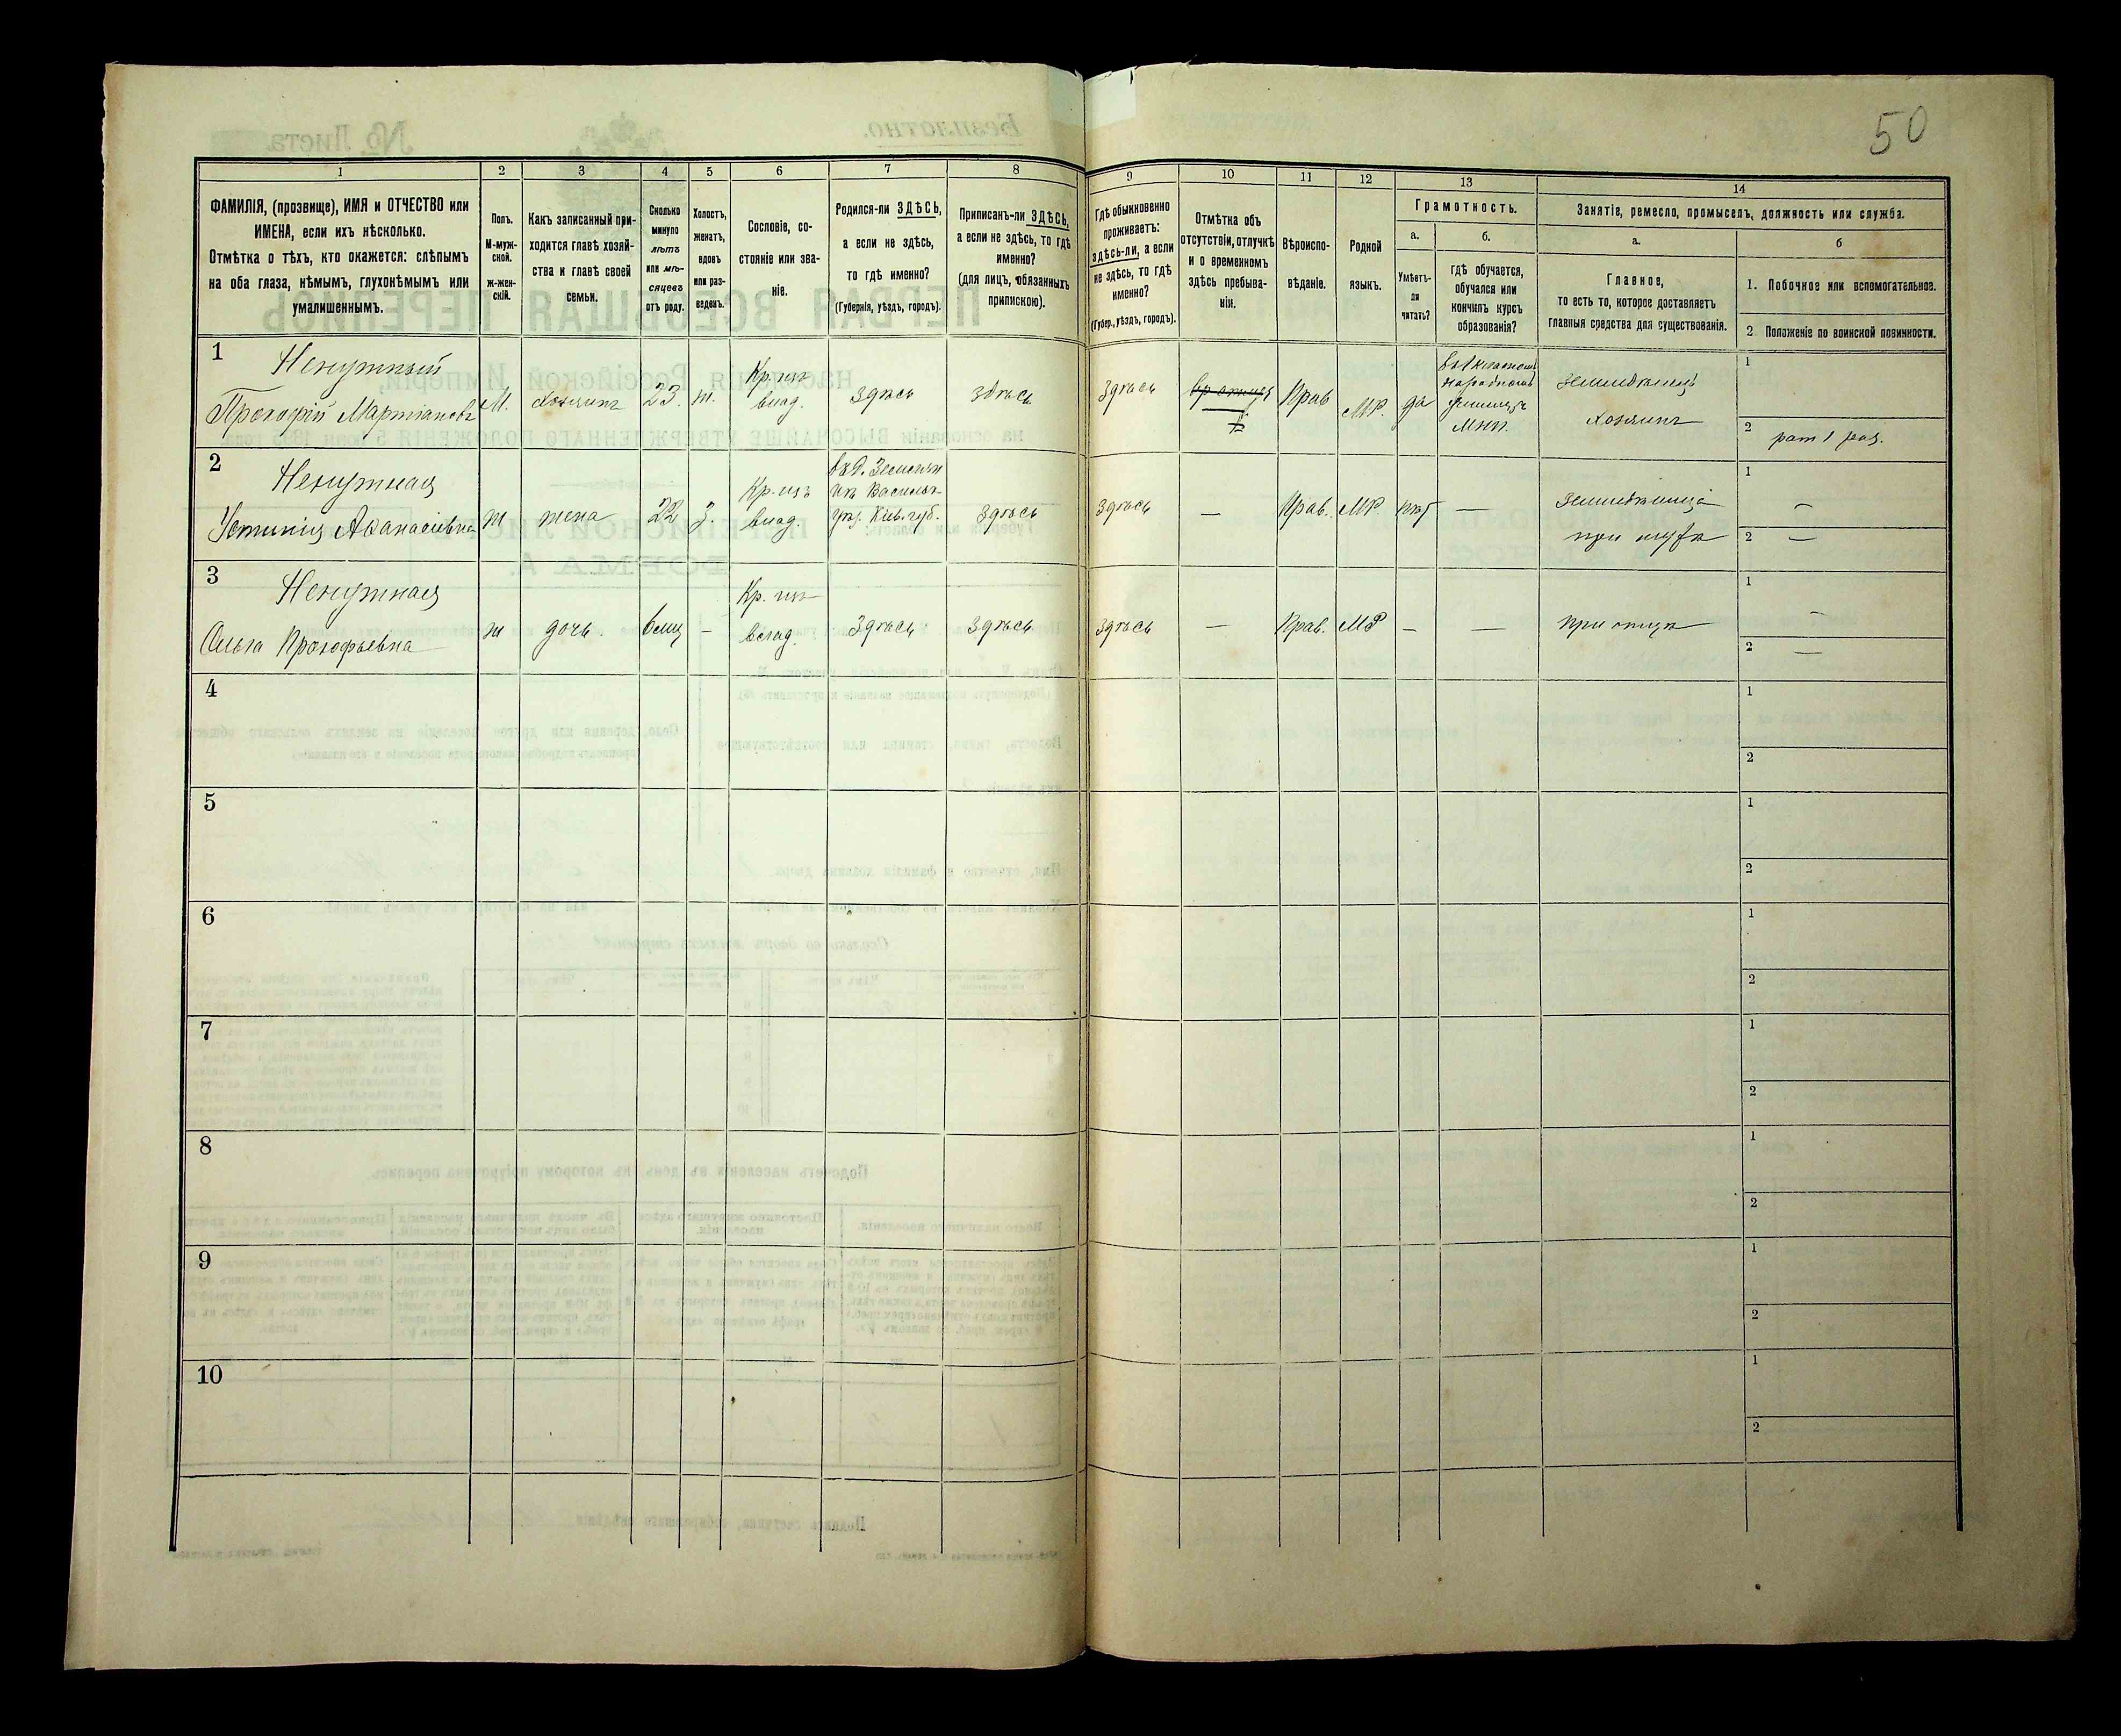 50
1
2
3
4
5
6
7
8
9
10
11
12
13
14
ФАМИЛІЯ, (прозвище), ИМЯ и ОТЧЕСТВО или
ИМЕНА, если ихъ нѣсколько.
Отмѣтка о тѣхъ, кто окажется: слѣпымъ
на оба глаза, нѣмымъ, глухонѣмымъ или
умалишеннымъ.
Полъ.
М-муж-
ской.
Ж-жен-
скій.
Какъ записанный при-
ходится главѣ хозяй-
ства и главѣ своей
семьи.
Сколько
минуло
лѣтъ
или мѣ-
сяцевъ
отъ роду.
Холостъ,
женатъ,
вдовъ
или раз-
веденъ.
Сословіе, со-
стояніе или зва-
ніе.
Родился-ли ЗДѢСЬ,
а если не здѣсь,
то гдѣ именно?
(Губернія, уѣздъ, городъ).
Приписанъ-ли ЗДѢСЬ,
а если не здѣсь, то гдѣ
именно?
(для лицъ, обязанныхъ
припискою).
Гдѣ обыкновенно
проживаетъ:
здѣсь-ли, а если
не здѣсь, то гдѣ
именно?
(Губер., уѣздъ, городъ).
Отмѣтка объ
отсутствіи, отлучкѣ
и о временномъ
здѣсь пребыва-
ніи.
Вѣроиспо-
вѣданіе.
Родной
языкъ.
Грамотность.
а.
Умѣетъ-
ли
читать?
б.
гдѣ обучается,
обучался или
кончилъ курсъ
образованія?
Занятіе, ремесло, промыселъ, должность или служба.
а.
Главное,
то есть то, которое доставляетъ
главныя средства для существованія.
б
1. Побочное или вспомогательное.
2. Положеніе по воинской повинности.
1
Ненужный
Прокофій Мартіановъ
М.
Хозяинъ
23.
ж.
Кр. изъ
влад.
Здѣсь
здѣсь
Здѣсь
Прав
МР.
да
народномъ
училищѣ
МНП.
Земледѣлецъ
Хозяинъ
1
2
рат 1 раз.
2
Ненужная
Устинія Афанасіевна
ж
жена
22
З.
Кр. изъ
влад.
Васильк.
уѣз. Кіев. губ.
Здѣсь
Здѣсь
—
Прав.
МР.
нѣт
—
Земледѣлица
при мужѣ
1
—
2
—
3
Ненужная
Ольга Прокофьевна
ж
дочь.
6 мц
–
Кр. изъ
влад.
Здѣсь
Здѣсь
Здѣсь
—
Прав.
МР
–
—
При отцѣ
1
—
2
—
4
1
2
5
1
2
6
1
2
7
1
2
8
1
2
9
1
2
10
1
2